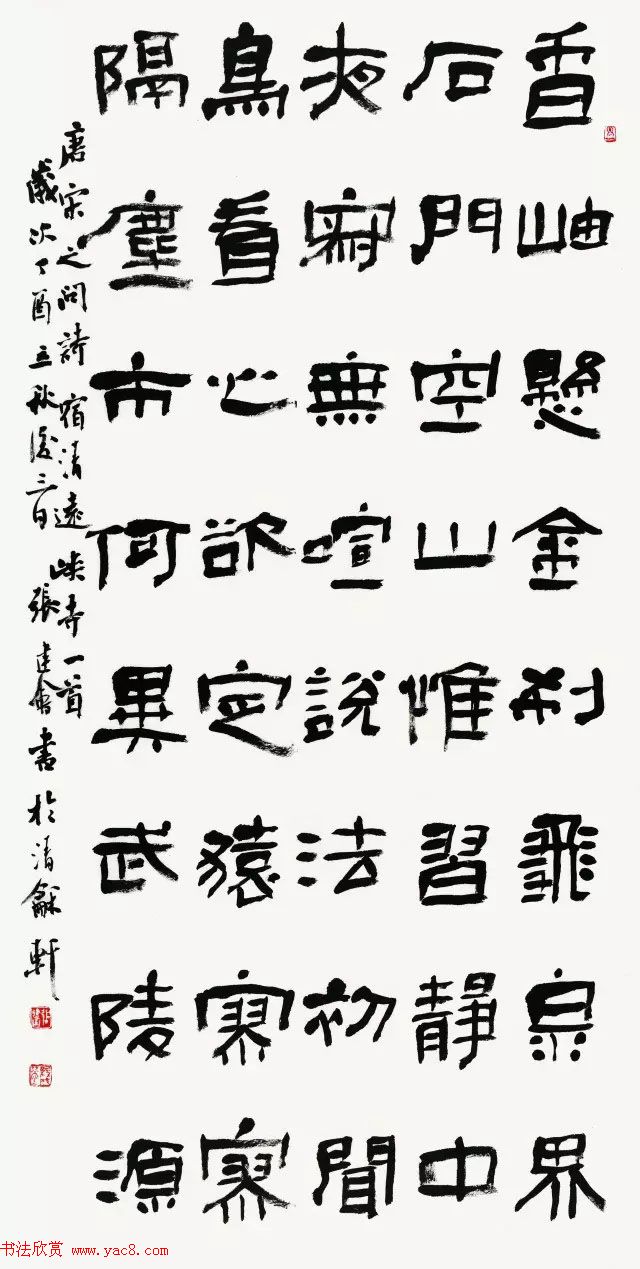 香岫懸金刹飛泉界
石門空山惟習靜中
夜寂無喧說法初聞
鳥看心欲定猿寥寥
隔塵市何異武陵源
唐宋之問詩宿清遠峽寺一首
歲次丁酉立秋後三日張建會書於清龢軒
书法欣赏 www.yac8.com